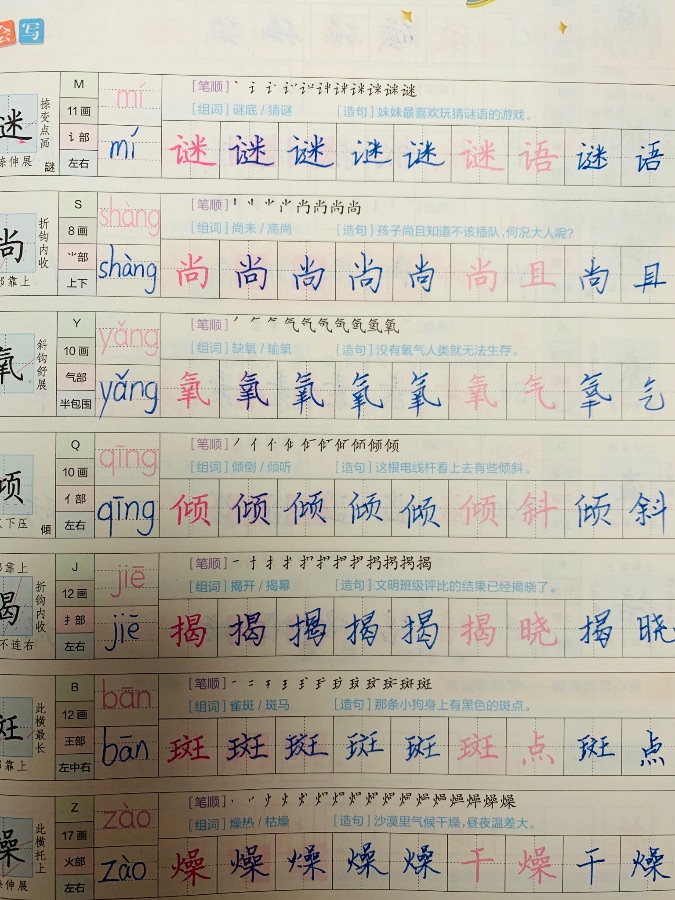 绘写
谜
捺变点画
捺伸展
謎
M
11画
讠部
左右
mí
mí
[笔顺]
[组词]谜底/猜谜 [造句]妹妹最喜欢玩猜谜语的游戏。
谜 谜 谜 谜 谜 谜 语 谜 语
尚
折钩内收
部靠上
S
8画
⺌部
上下
shàng
shàng
[笔顺]
[组词]尚未/高尚 [造句]孩子尚且知道不该插队,何况大人呢?
尚 尚 尚 尚 尚 尚 且 尚 且
氧
斜钩舒展
Y
10画
气部
半包围
yǎng
yǎng
[笔顺]
[组词]缺氧/输氧 [造句]没有氧气人类就无法生存。
氧 氧 氧 氧 氧 氧 气 氧 气
倾
下压
傾
Q
10画
亻部
左右
qīng
qīng
[笔顺]
[组词]倾倒/倾听 [造句]这根电线杆看上去有些倾斜。
倾 倾 倾 倾 倾 倾 斜 倾 斜
部靠上
揭
折钩内收
不连右
J
12画
扌部
左右
jiē
jiē
[笔顺]
[组词]揭开/揭幕 [造句]文明班级评比的结果已经揭晓了。
揭 揭 揭 揭 揭 揭 晓 揭 晓
斑
此横最长
部靠上
B
12画
王部
左中右
bān
bān
[笔顺]
[组词]雀斑/斑马 [造句]那条小狗身上有黑色的斑点。
斑 斑 斑 斑 斑 斑 点 斑 点
燥
此横托上
捺伸展
Z
17画
火部
左右
zào
zào
[笔顺]
[组词]燥热/枯燥 [造句]沙漠里气候干燥,昼夜温差大。
燥 燥 燥 燥 燥 干 燥 干 燥